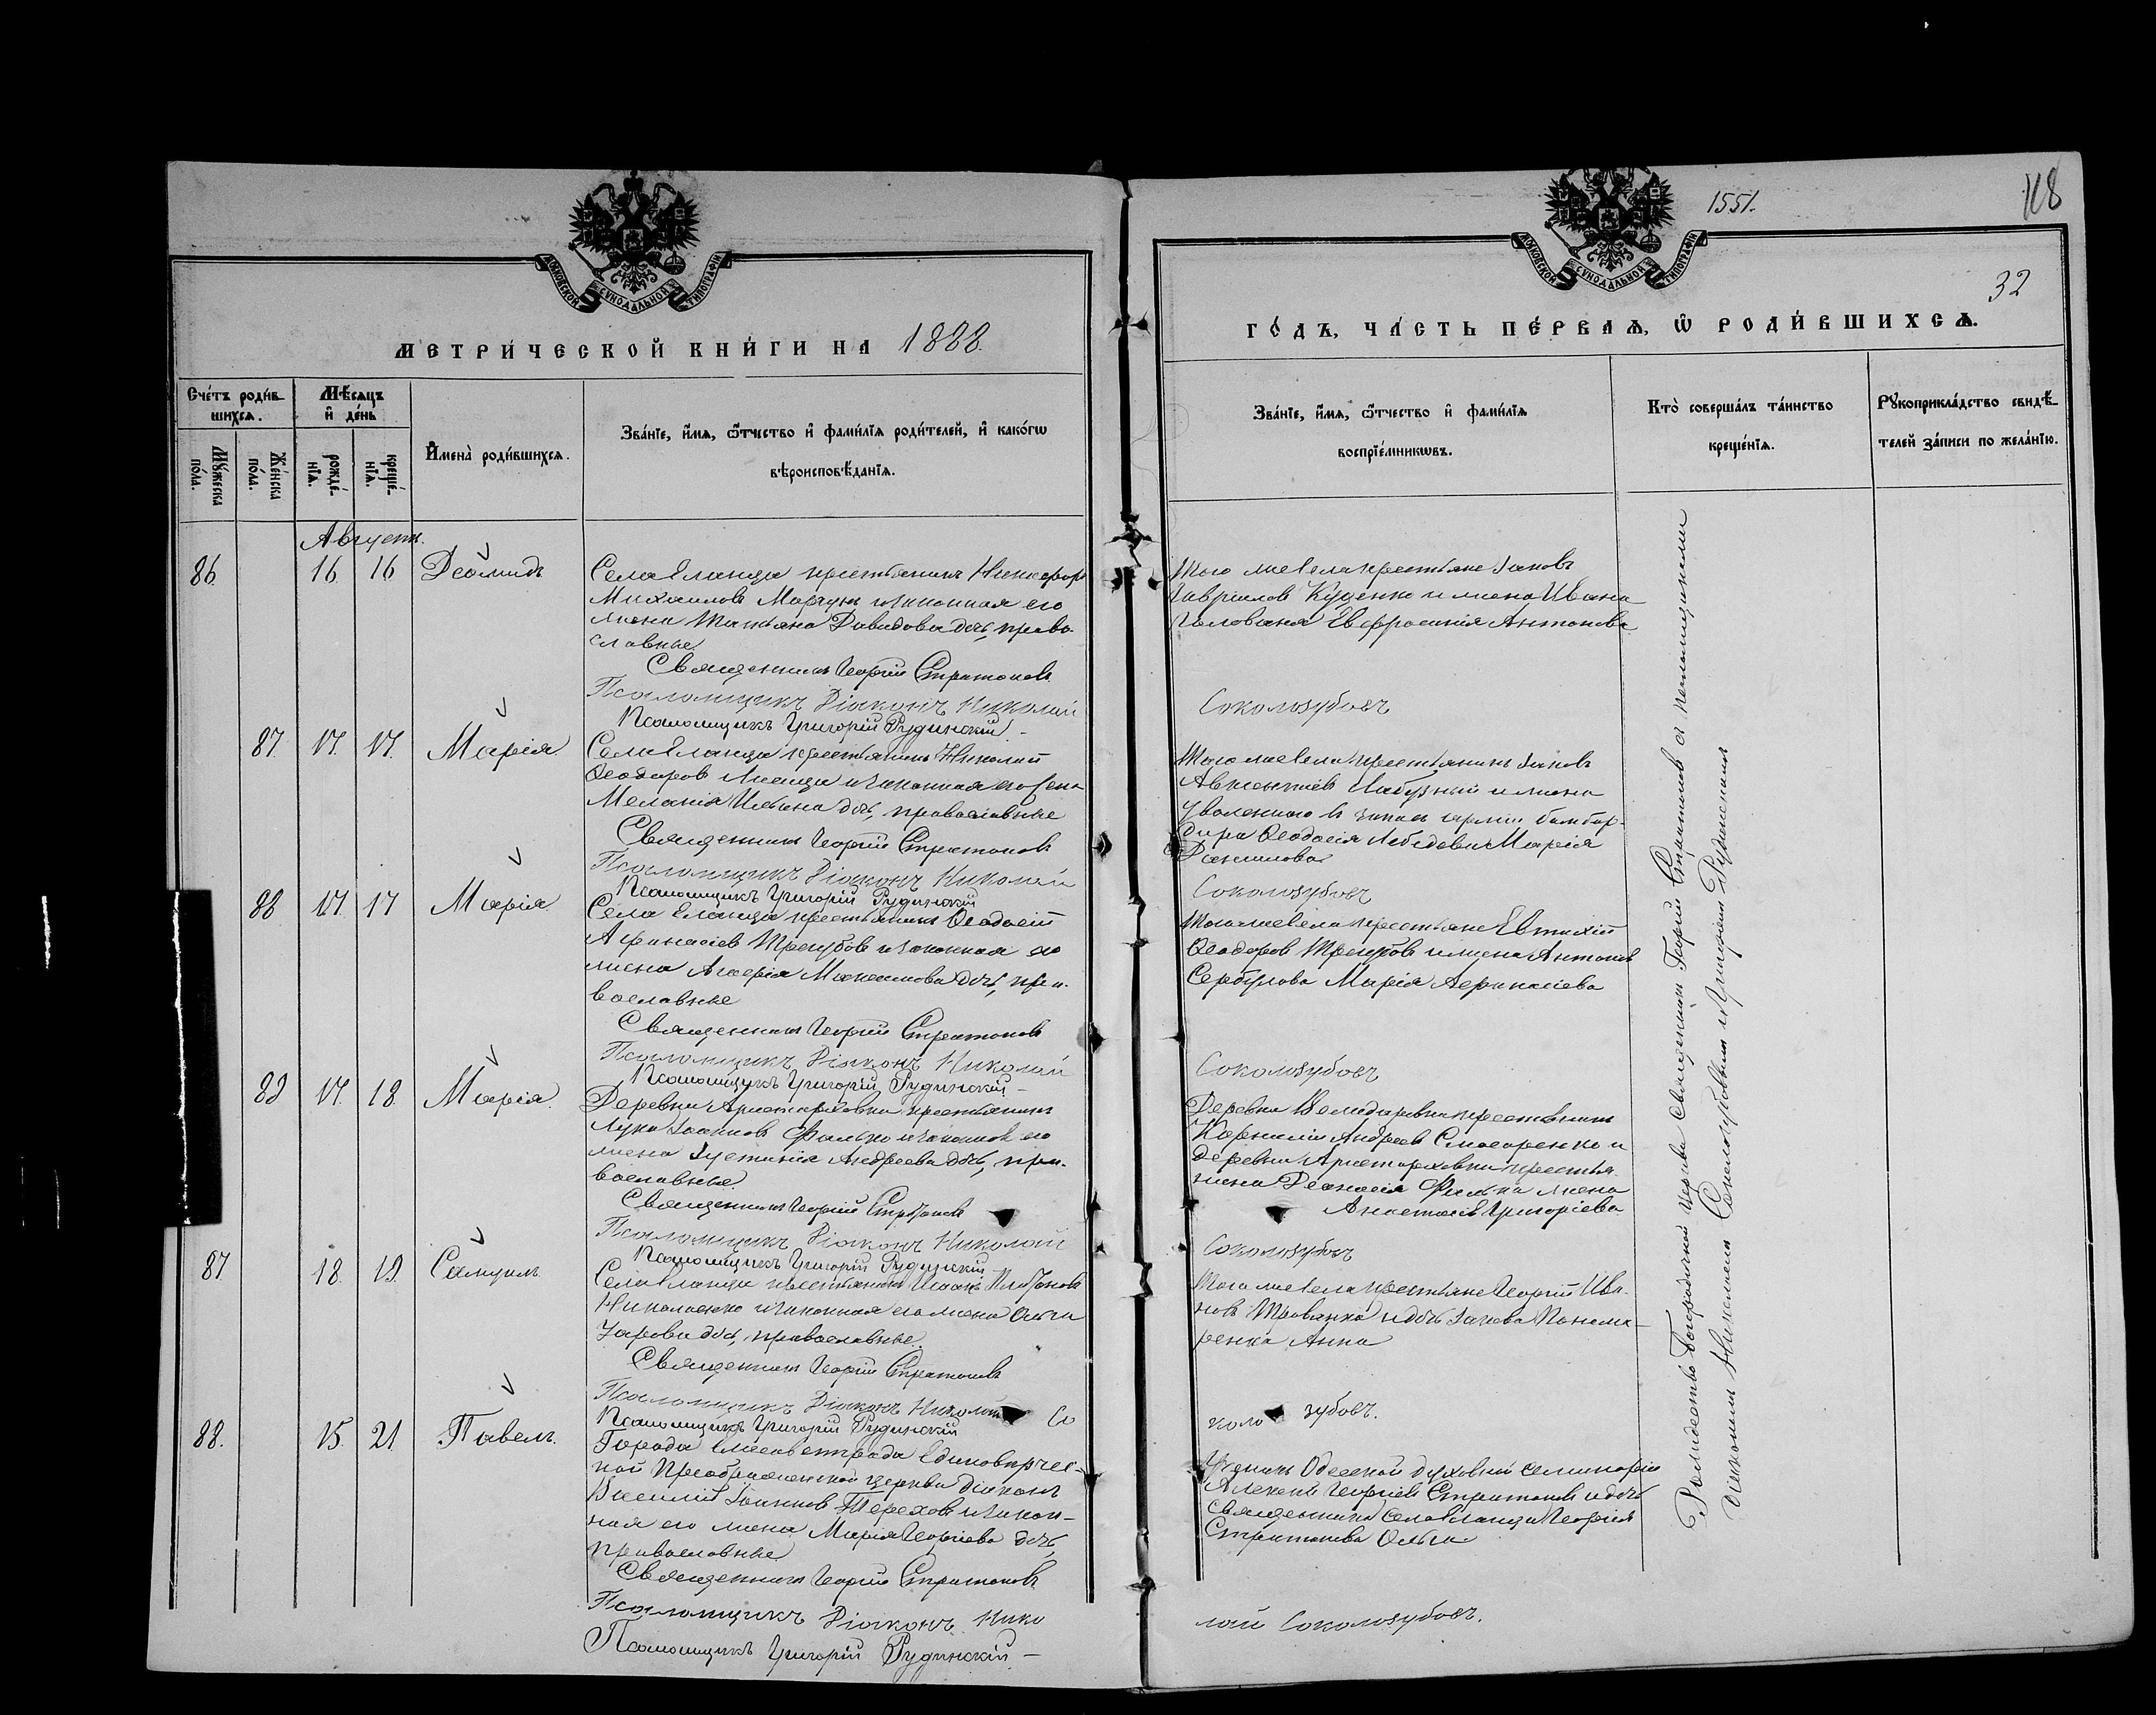 МОСКОВСКОЙ СѴНОДАЛЬНОЙ ТИПОГРАФІИ
МЕТРИ́ЧЕСКОЙ КНИ́ГИ НА 1888.
Сче́тъ роди́в-
шихсѧ.
Мѣ́сѧцъ
и҆ де́нь
Мꙋ́жеска
по́ла.
Же́нска
по́ла.
рожде́-
нїѧ.
креще́-
нїѧ.
И҆мена̀ роди́вшихсѧ.
Зва́нїе, и҆́мѧ, ѻ҆́тчество и҆ фамилїѧ роди́телей, и҆ како́гѡ
вѣроисповѣ́данїѧ.
Августъ.
86. 16. 16 Деомидъ
Села Еланца крестьянинъ Никифоръ
Михаиловъ Марчукъ и законная его
жена Татьяна Давидова дочь, право-
славные.
Священникъ Георгій Стратоновъ
Псаломщикъ Діаконъ Николай
Псаломщикъ Григорій Рудинскій
87. 17. 17. Марія
Села Еланца крестьянинъ Николай
Ѳеодоровъ Лисица и законная его жена
Меланія Ильина дочь, православные
Священникъ Георгій Стратоновъ
Псаломщикъ Діаконъ Николай
Псаломщикъ Григорій Рудинскій
88 17 17 Марія
Села Еланца крестьянинъ Ѳеодосій
Афанасіевъ Трегубовъ и законная его
жена Максимова дочь, пра-
вославные
Священникъ Георгій Стратоновъ
Псаломщикъ Діаконъ Николай
Псаломщикъ Григорій Рудинскій
89 17. 18. Марія.
Деревни Аристарховки крестьянинъ
Лука Іоанновъ Фалько и законная его
жена Іустинія Андреева дочь, пра-
вославные.
Священникъ Георгій Стратоновъ
Псаломщикъ Діаконъ Николай
Псаломщикъ Григорій Рудинскій
87 18. 19. Самуилъ
Села Еланца крестьянинъ Исаакъ Платоновъ
Николаенко и законная его жена Ольга
дочь, православные
Священникъ Георгій Стратоновъ
Псаломщикъ Діаконъ Николай Со
Псаломщикъ Григорій Рудинскій
88. 15. 21 Павелъ.
Города Елисаветграда Единовѣрчес-
кой Преображенской церкви діаконъ
Василій Іоанновъ Тереховъ и закон-
ная его жена Марія Георгіева дочь,
православные
Священникъ Георгій Стратоновъ
Псаломщикъ Діаконъ Нико
Псаломщикъ Григорій Рудинскій
МОСКОВСКОЙ СѴНОДАЛЬНОЙ ТИПОГРАФІИ
1551.
118
32
ГО́ДЪ, ЧА́СТЬ ПЕ́РВАѦ, Ѡ҆ РОДИ́ВШИХСѦ.
Зва́нїе, и҆́мѧ, ѻ҆́тчество и҆ фамилїѧ
воспрїе́мникѡвъ.
Кто̀ соверша́лъ та́инство
креще́нїѧ.
Рꙋкоприкла́дство свидѣ́-
телей за́писи по жела́нїю.
Того же села крестьяне Іаковъ
Гавріиловъ Куценко и жена Ивана
Голована Евфросинія Антонова
Соколозубовъ
Того же села крестьянинъ Іаковъ
Авксентіевъ Лабузный и жена
уволеннаго въ запасъ арміи бомбар-
дира Ѳеодосія Лебедева Марія
Данилова
Соколозубовъ
Того же села крестьяне Евтихій
Ѳеодоровъ Трегубовъ и жена Антонія
Сербулова Марія Афанасіева
Соколозубовъ
Деревни крестьянинъ
Корнилій Андреевъ Слюсаренко и
деревни Аристарховки крестья-
нина Фалька жена
Анастасія Григоріева
Соколозубовъ
Того же села крестьяне Георгій Ива-
новъ Трованко и дочь Іакова Понома-
ренка Анна
коло зубовъ.
Ученикъ Одесской духовной семинаріи
Алексѣй Георгіевъ Стратоновъ и дочь
священника села Еланца Георгія
Стратонова Ольга
лай Соколозубовъ.
Рождество-Богородичной церкви священникъ Георгій Стратоновъ съ псаломщиками
діакономъ Николаемъ Соколозубовымъ и Григоріемъ Рудинскимъ